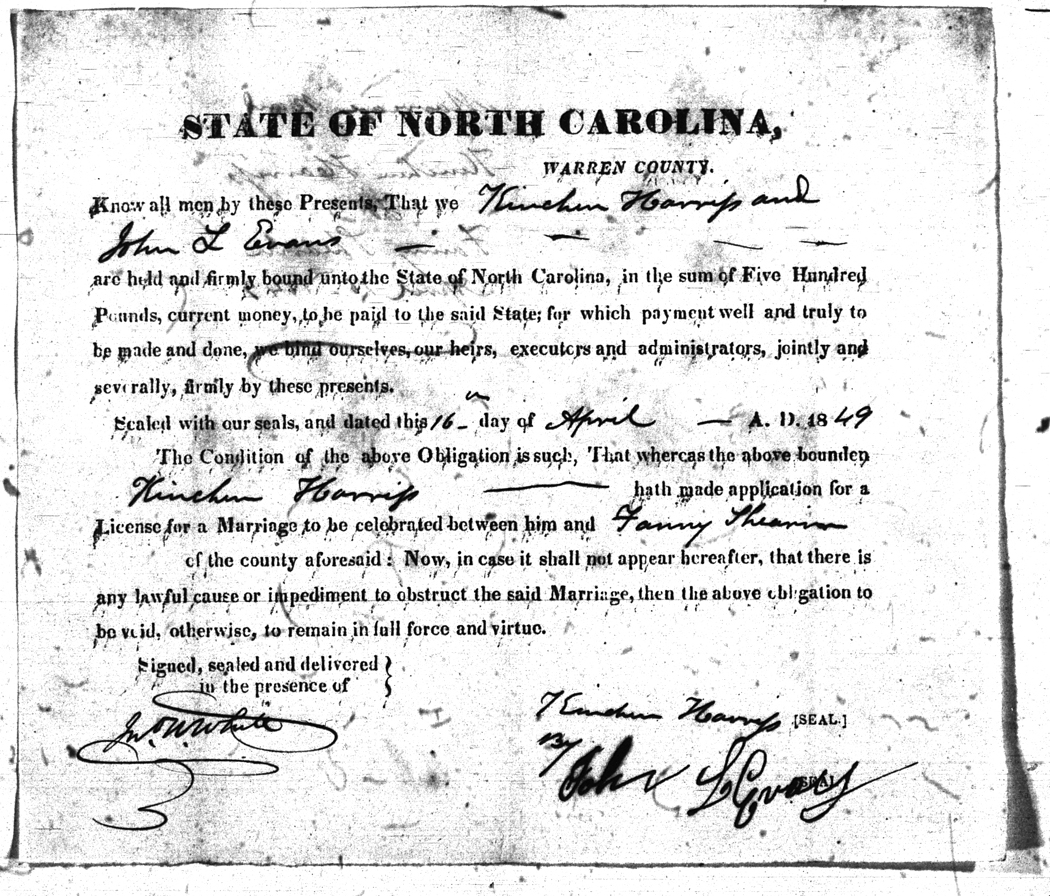 STATE OF NORTH CAROLINA,
WARREN COUNTY.
Know all men by these Presents, That we Kinchen Harriss and
John L Evans
are held and firmly bound unto the State of North Carolina, in the sum of Five Hundred
Pounds, current money, to be paid to the said State; for which payment well and truly to
be made and done, we bind ourselves, our heirs, executors and administrators, jointly and
severally, firmly by these presents.
Sealed with our seals, and dated this 16 day of April — A. D. 1849
The Condition of the above Obligation is such, That whereas the above bounden
Kinchen Harriss — hath made application for a
License for a Marriage to be celebrated between him and Fanny Shearin
of the county aforesaid: Now, in case it shall not appear hereafter, that there is
any lawful cause or impediment to obstruct the said Marriage, then the above obligation to
be void, otherwise, to remain in full force and virtue.
Signed, sealed and delivered }
in the presence of
Jno. W. White
Kinchen Harriss [SEAL.]
By
John L Evans [SEAL]